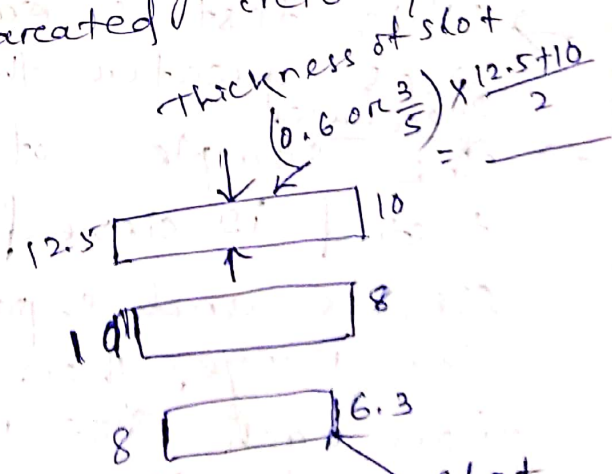 areated
Thickness of slot
(0.6 or 3/5) × 12.5+10/2
= ___
12.5 10
10 8
8 6.3